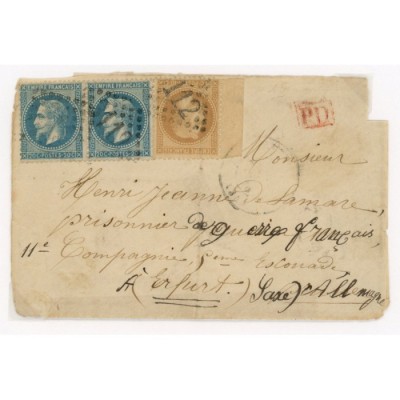 EMPIRE FRANÇAIS EMPIRE FRANÇAIS
112
P.D.
Monsieur
Henri Jeanne de Lamare
prisonnier de guerre français,
11e Compagnie, Escouade
à Erfurt) Saxe) Allemagne